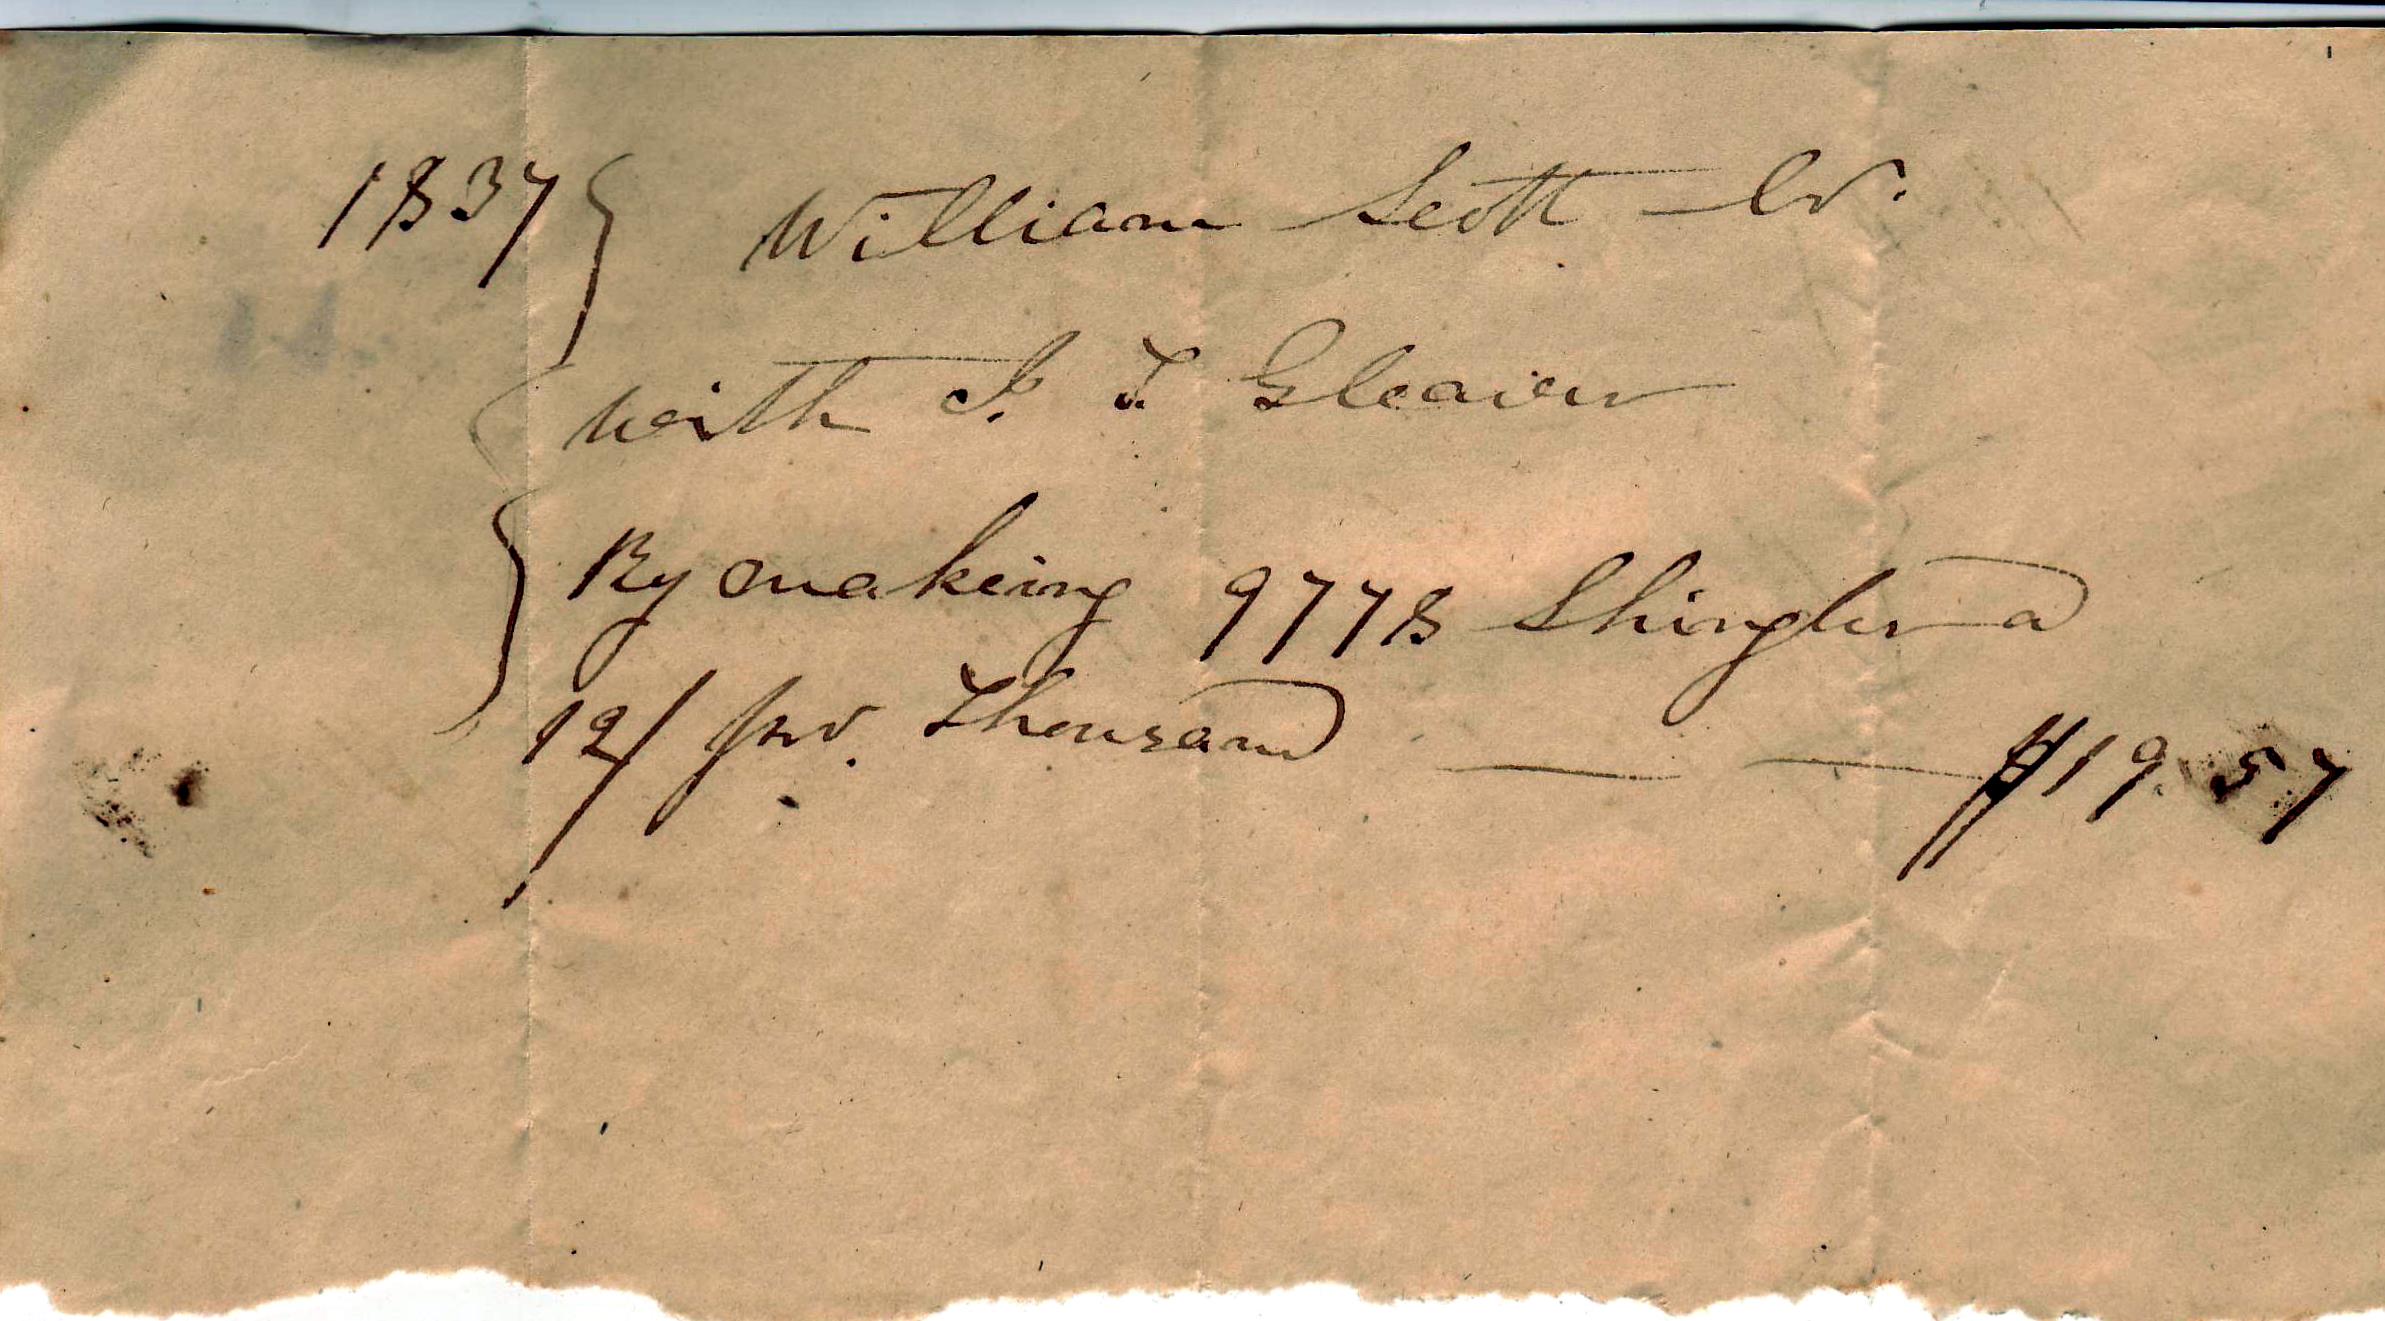 1837 } William Scott Cr.
with I. T. Gleaver
By makeing 9778 Shingles a
12/ per. Thousand — — $19.57